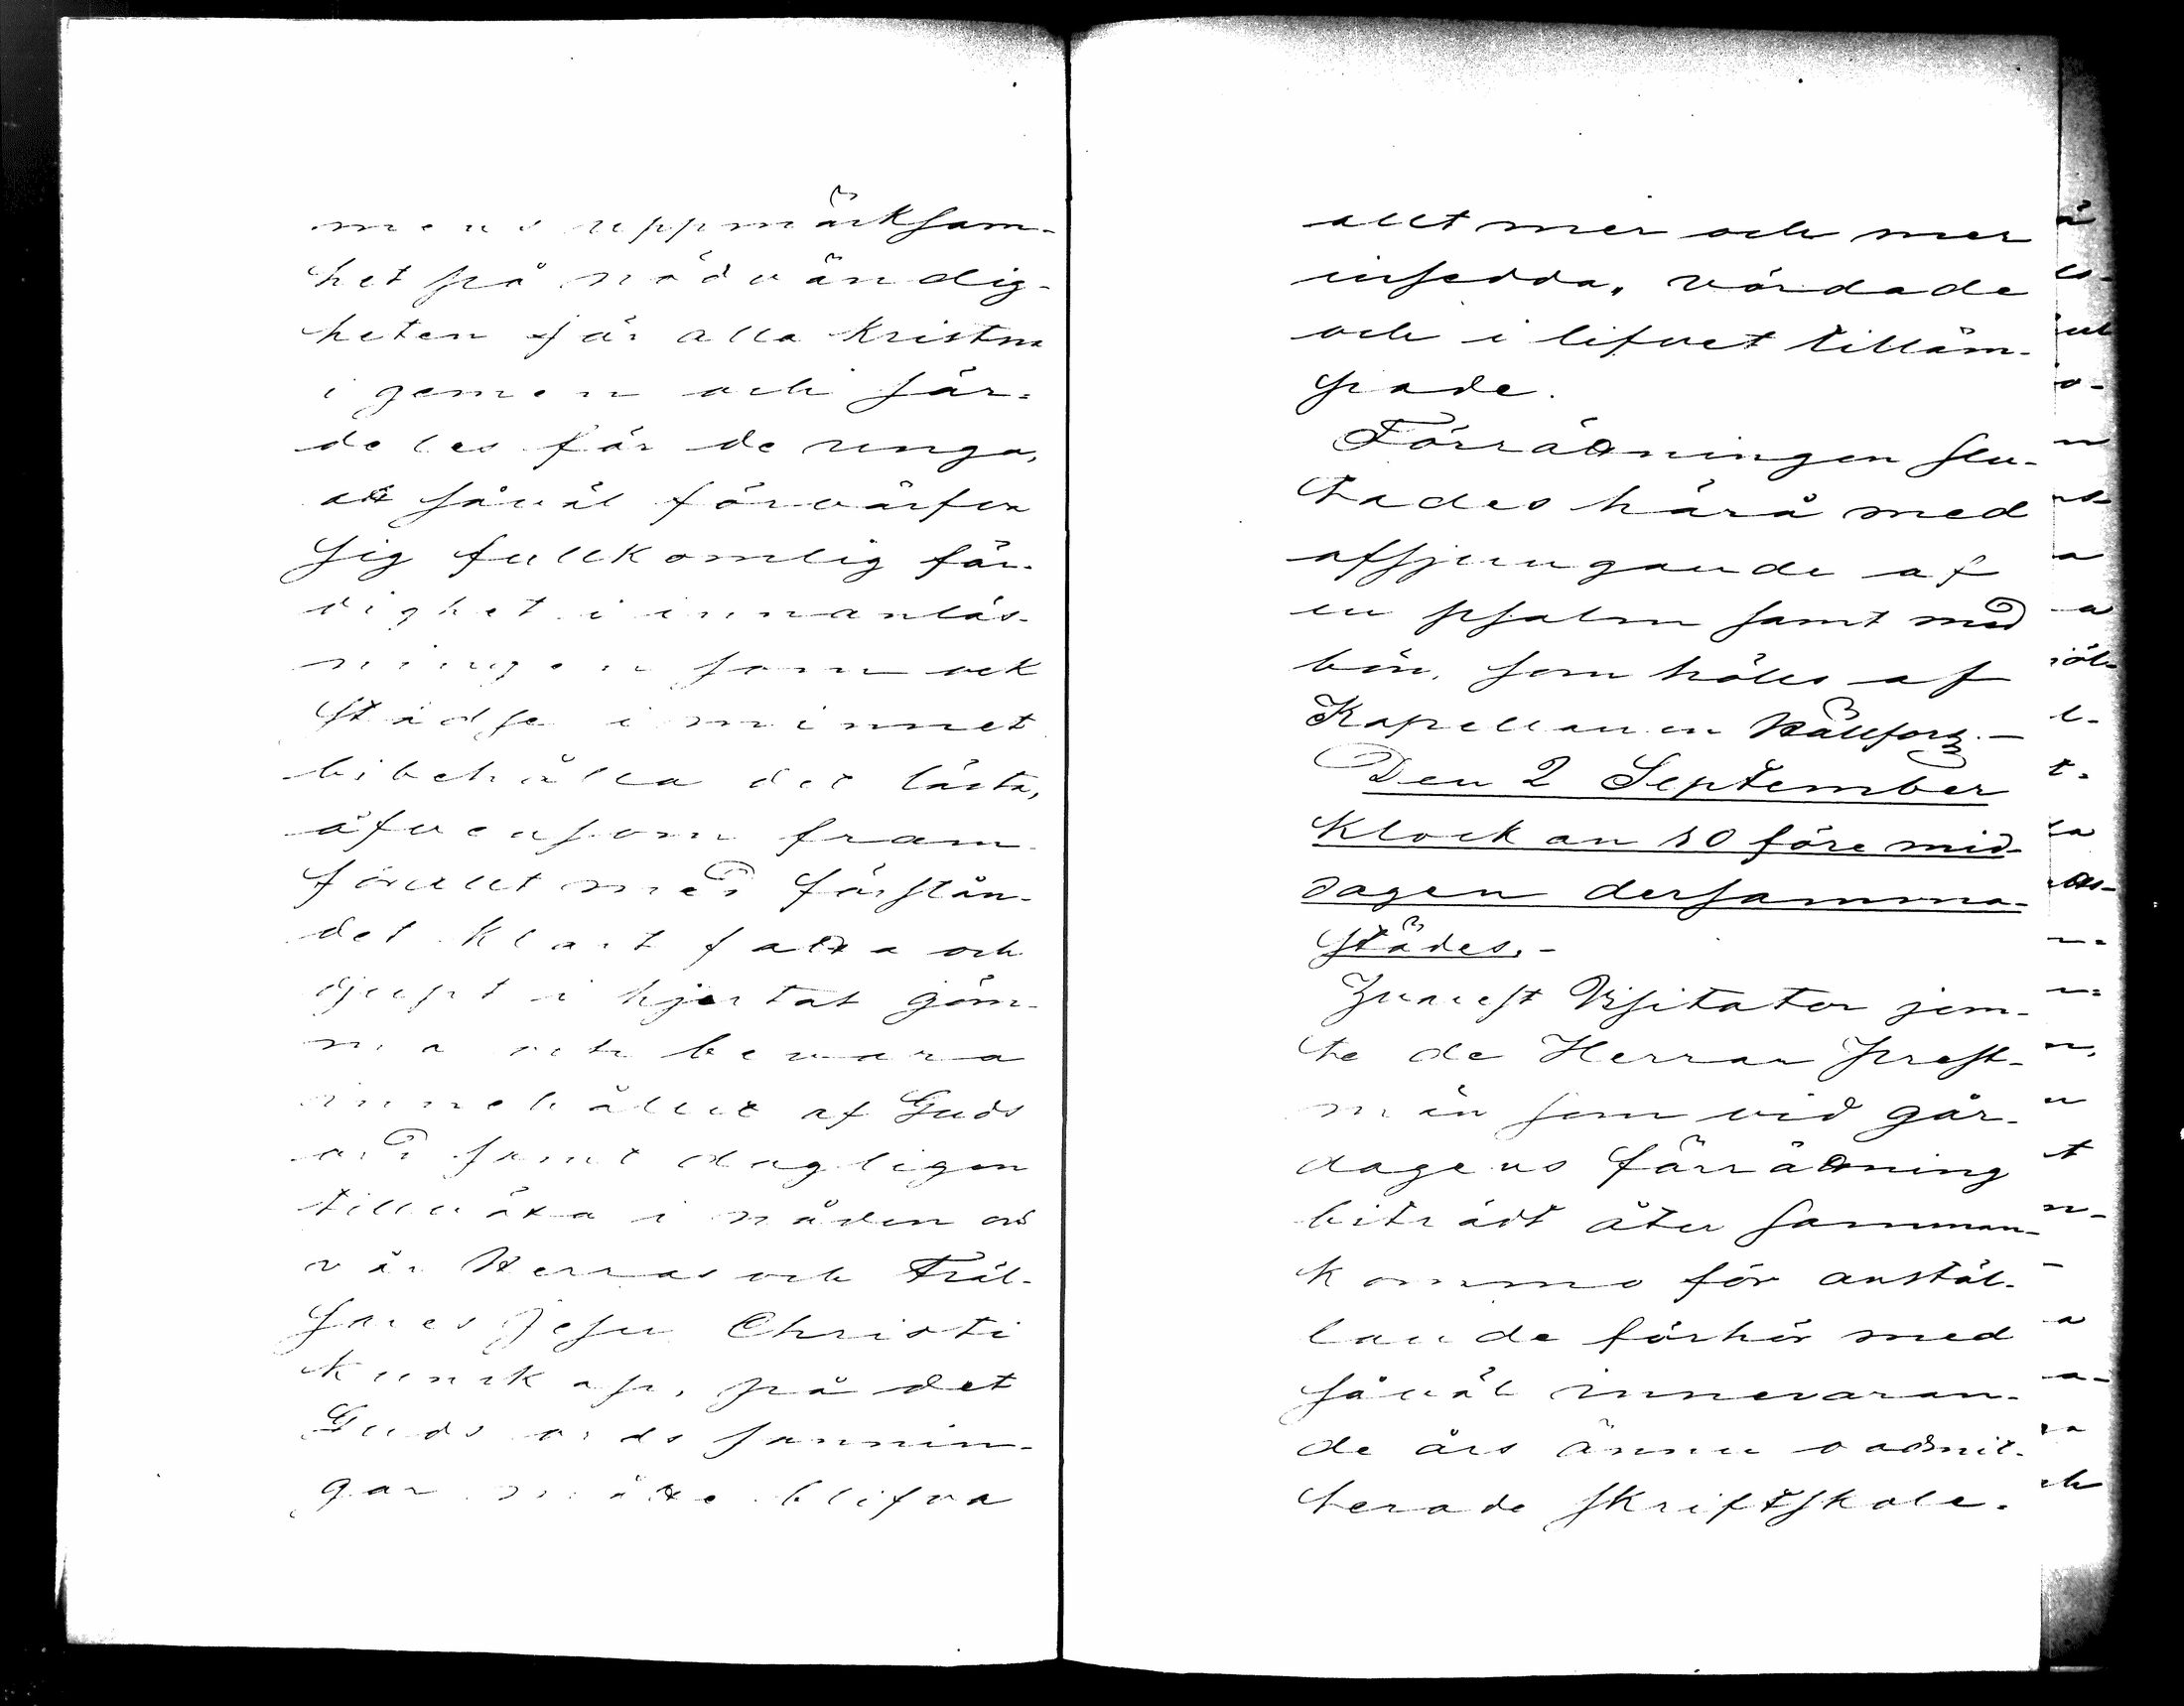 mens uppmärksam-
het på nödvändig-
heten för alla Kristna
i gemen och sär-
deles för de unga,
att såväl förvärfva
sig fullkomlig fär-
dighet i innanläs-
ningen som ock
städse i minnet
bibehålla det lästa,
äfvensom fram-
förallt med förstån-
det klart fatta och
djupt i hjertat göm-
ma och bevara
innehållet af Guds
ord samt dagligen
tillväxa i nåden och
vår Herras och Fräl-
sares Jesu Christi
kunskap, på det
Guds ords sannin-
gar måtte blifva
allt mer och mer
insedda, vördade
och i lifvet tilläm-
pade.
Förrättningen slu-
tades härå med
afsjungande af
en psalm samt med
bön, som hölls af
Kapellanen Hällfors. –
Den 2 September
Klockan 10 före mid-
dagen dersamma-
städes. –
Zunæst Visitator jem-
te de Herrar prest-
män som vid går-
dagens förrättning
biträdt åter samman-
kommo för anstäl-
lande förhör med
såväl innevaran-
de års ännu oadmit-
terade skriftskole-